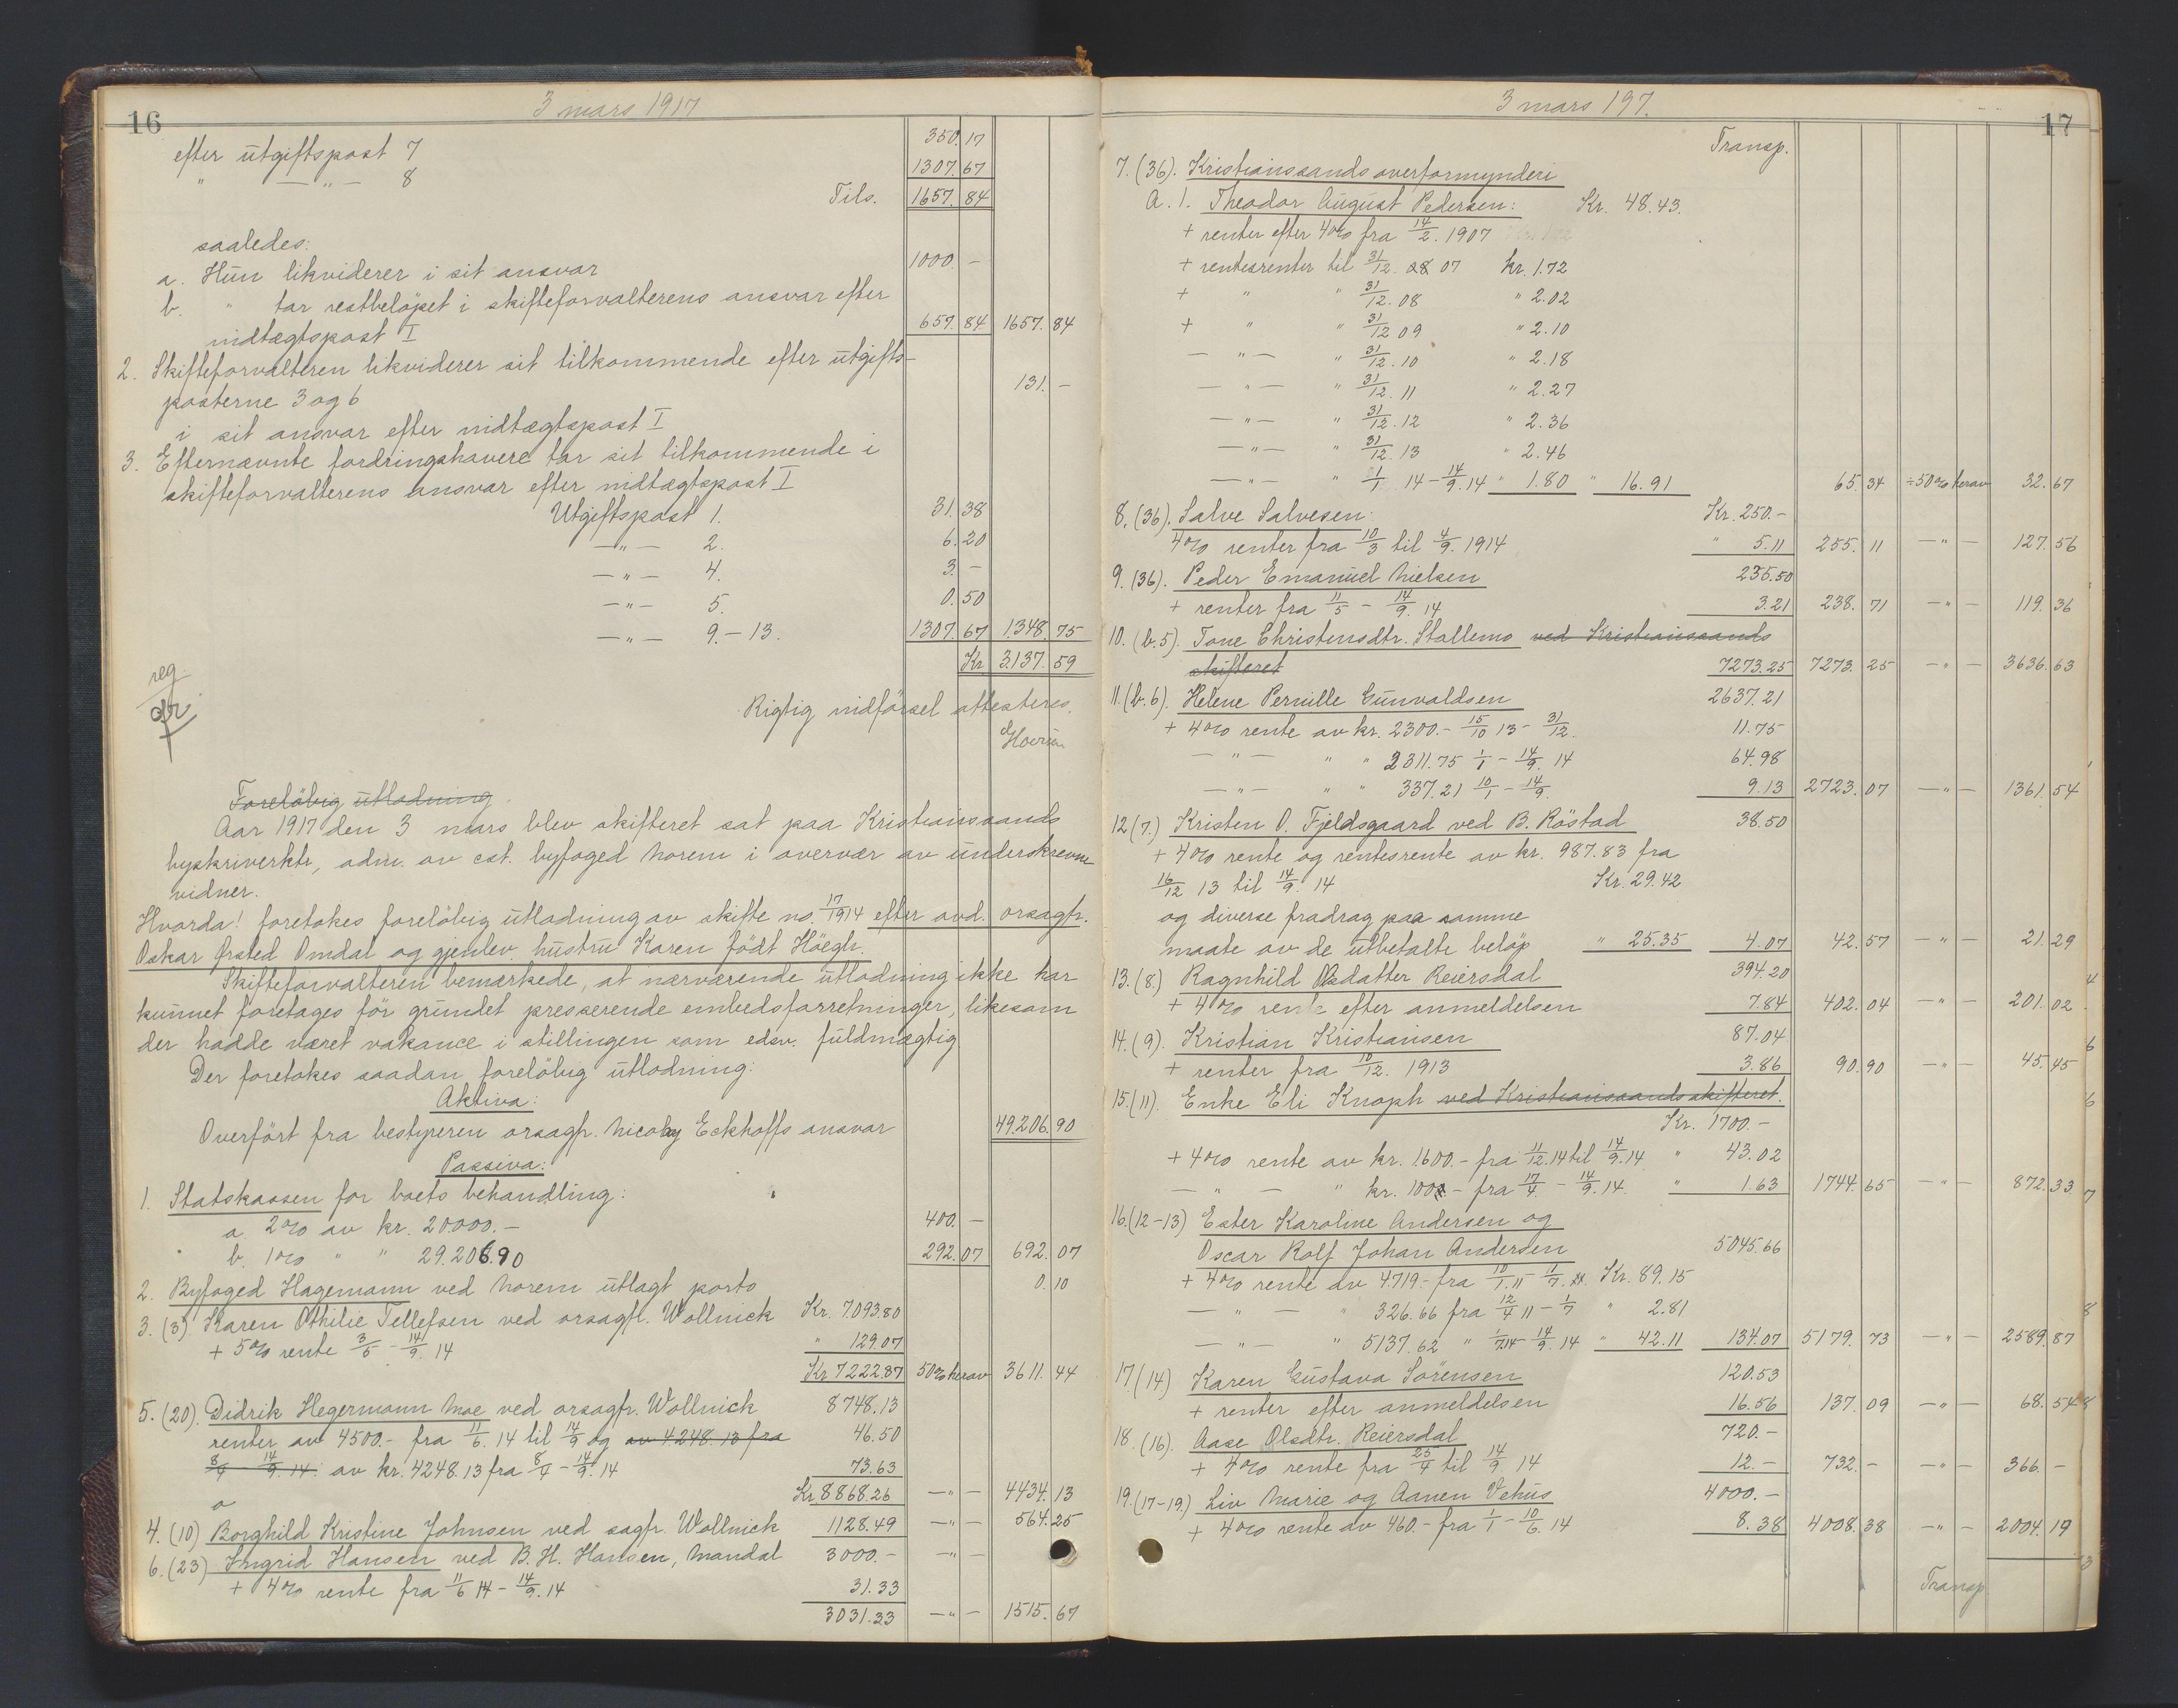 16
3 mars 1917
efter utgiftspost 7 350.17
" —"— 8 1307.67
Tils. 1657.84
saaledes:
a. Hun likviderer i sit ansvar 1000.—
b. " tar restbeløpet i skifteforvalterens ansvar efter
indtægtspost I 657.84 1657.84
2. Skifteforvalteren likviderer sit tilkommende efter utgifts-
posterne 3 og 6 131.—
i sit ansvar efter indtægtspost I
3. Efternævnte fordringshavere tar sit tilkommende i
skifteforvalterens ansvar efter indtægtspost I
Utgiftspost 1. 31.38
—"— 2. 6.20
—"— 4. 3.—
—"— 5. 0.50
—"— 9.-13. 1307.67 1348.75
Kr. 3137.59
reg
Rigtig indførsel attesteres.
Foreløbig utlodning
Aar 1917 den 3 mars blev skifteret sat paa Kristianssands
byskriverktr, adm. av cst. byfoged Norem i overvær av underskrevne
vidner.
Hvorda! foretokes foreløbig utlodning av skifte no. 17/1914 efter avd. orsagfr.
Oskar Ørsted Omdal og gjenlev. hustru Karen født Høegh.
Skifteforvalteren bemærkede, at nærværende utlodning ikke har
kunnet foretages før grundet presserende embedsforretninger, likesom
der hadde været vakance i stillingen som edsv. fuldmægtig
Der foretokes saadan foreløbig utlodning:
Aktiva:
Overført fra bestyreren orsagfr. Nicolay Eckhoffs ansvar 49206.90
Passiva:
1. Statskassen for boets behandling:
a. 2% av kr. 20000.— 400.—
b. 1% " " 29.206.90 292.07 692.07
2. Byfoged Hagemann ved Norem utlagt porto 0.10
3. (3) Karen Othilie Tellefsen ved orsagfr. Wollnick Kr. 7.093.80
+ 5% rente 3/5 - 14/9. 14 " 129.07
Kr 7222.87 50% herav 3611.44
5. (20). Didrik Hegermann Moe ved orsagfr. Wollnick 8748.13
renter av 4500.- fra 11/6. 14 til 14/9 og av 4248.13 fra 46.50
8/4 14/9. 14. av kr. 4248.13 fra 8/4 - 14/9. 14 73.63
Kr 8868.26 —"— 4434.13
4. (10) Borghild Kristine Johnsen ved sagfr. Wollnick 1128.49 —"— 564.25
6. (23) Ingrid Hansen ved B. H. Hansen, Mandal 3000.- —"—
+ 4% rente fra 11/6 14 - 14/9. 14 31.33
3031.33 —"— 1515.67
3 mars 197.
17
Transp.
7. (36). Kristianssands overformynderi
a. 1. Theodor August Pedersen: Kr. 48.43.
+ renter efter 4% fra 14/2. 1907
+ rentesrenter til 31/12. 07 kr. 1.72
+ " " 31/12. 08 " 2.02
+ " " 31/12 09 " 2.10
—"— " 31/12. 10 " 2.18
—"— " 31/12. 11 " 2.27
—"— " 31/12. 12 " 2.36
—"— " 31/12. 13 " 2.46
—"— " 1/1 14 - 14/9. 14 " 1.80 " 16.91 65.34 ÷50% herav 32.67
8. (36). Salve Salvesen: Kr. 250.-
4% renter fra 10/3 til 4/9. 1914 " 5.11 255.11 —"— 127.56
9. (36). Peder Emanuel Nielsen 235.50
+ renter fra 11/5 - 14/9. 14 3.21 238.71 —"— 119.36
10. (b.5). Tone Christensdtr. Stallemo ved Kristianssands
skifteret 7273.25 7273.25 —"— 3636.63
11. (b.6). Helene Pernille Gunvaldsen 2637.21
+ 4% rente av kr. 2300.- 15/10 13 - 31/12. 11.75
—"— " " 2311.75 1/1 - 14/9. 14 64.98
—"— " " 337.21 10/1 - 14/9. 9.13 2723.07 —"— 1361.54
12 (7.) Kristen O. Fjeldsgaard ved B. Røstad 38.50
+ 4% rente og rentesrente av kr. 987.83 fra
16/12 13 til 14/9. 14 Kr. 29.42
og diverse fradrag paa samme
maate av de utbetalte beløp " 25.35 4.07 42.57 —"— 21.29
13. (8.) Ragnhild Olsdatter Reiersdal 394.20
+ 4% rente efter anmeldelsen 7.84 402.04 —"— 201.02
14. (9). Kristian Kristiansen 87.04
+ renter fra 10/12. 1913 3.86 90.90 —"— 45.45
15. (11). Enke Eli Knoph ved Kristianssands skifteret.
Kr. 1700.-
+ 4% rente av kr. 1.600.- fra 11/12.14 til 14/9.14 " 43.02
—"— " kr. 100.- fra 17/4. - 14/9. 14. " 1.63 1744.65 —"— 872.33
16. (12-13) Ester Karoline Andersen og
Oscar Rolf Johan Andersen 5045.66
+ 4% rente av 4719.- fra 10/1. 11 - 1/7. Kr. 89.15
—"— " 326.66 fra 12/4 11 - 1/7 " 2.81
—"— " 5137.62 " 1/7 14 - 14/9. 14 " 42.11 134.07 5179.73 —"— 2589.87
17. (14) Karen Gustava Sørensen 120.53
+ renter efter anmeldelsen 16.56 137.09 —"— 68.54
18. (16). Aase Olsdtr. Reiersdal 720.-
+ 4% rente fra 25/4 til 14/9 14 12.- 732.- —"— 366.-
19. (17-19.) Liv Marie og Aanen Vehus 4000.-
+ 4% rente av 460.- fra 1/1 - 10/6. 14 8.38 4008.38 —"— 2004.19
Transp.